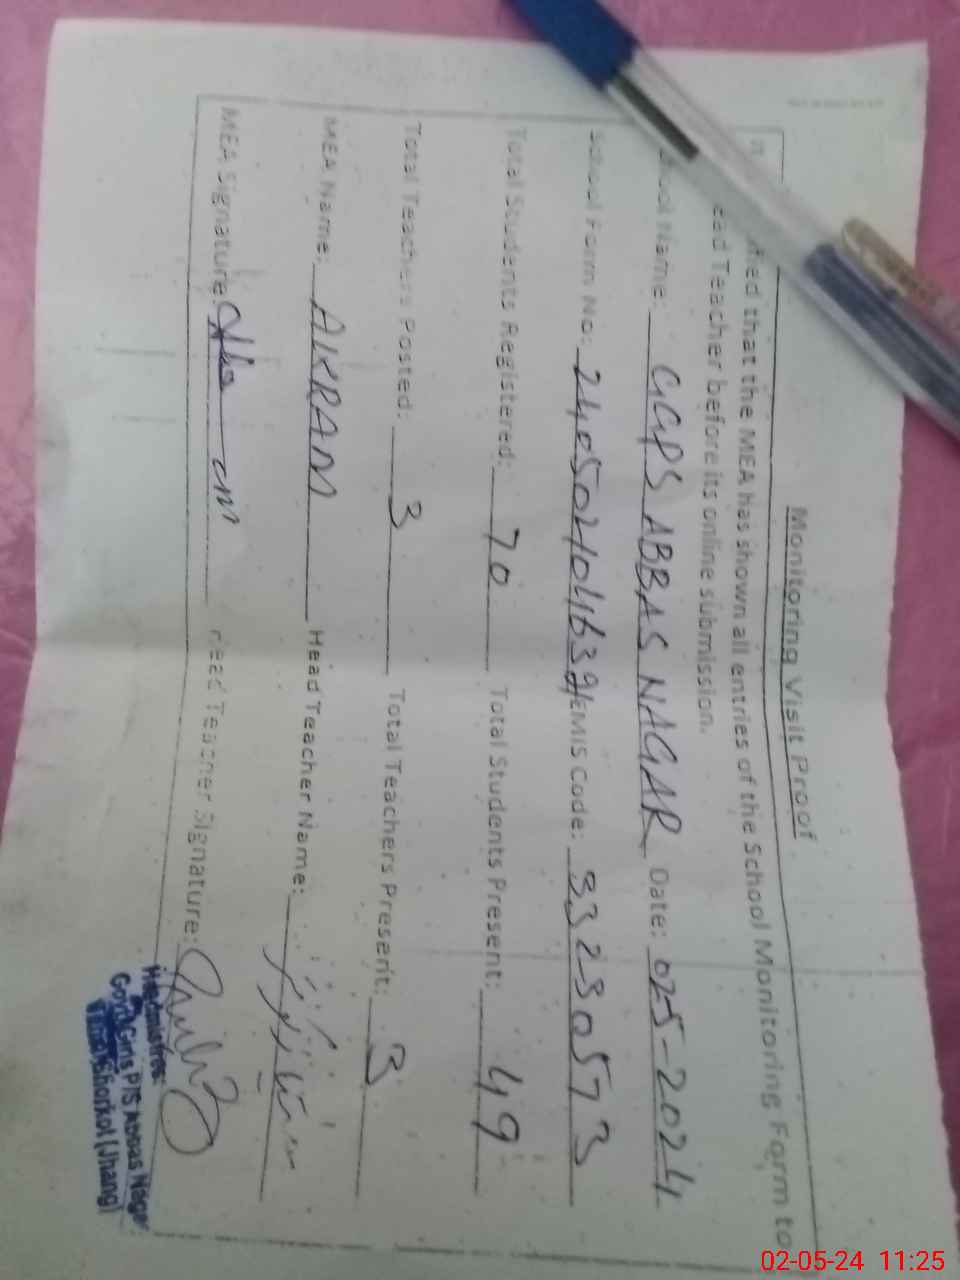 Monitoring Visit Proof
that the MEA has shown all entries of the School Monitoring Form to
Teacher before its online submission.
Name: GGPS ABBAS NAGAR Date: 025-2024
School Form No: EMIS Code: 33230573
Total Students Registered: 70 Total Students Present: 49
Total Teachers Posted: 3 Total Teachers Present: 3
MEA Name: AKRAM Head Teacher Name:
MEA Signature: Head Teacher Signature:
Headmistress
Govt. Girls P/S Abbas Nagar
Shorkot (Jhang)
02-05-24 11:25